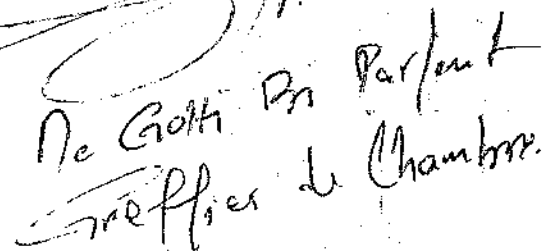 Me Gotti Bi Parfait
Greffier de Chambre.